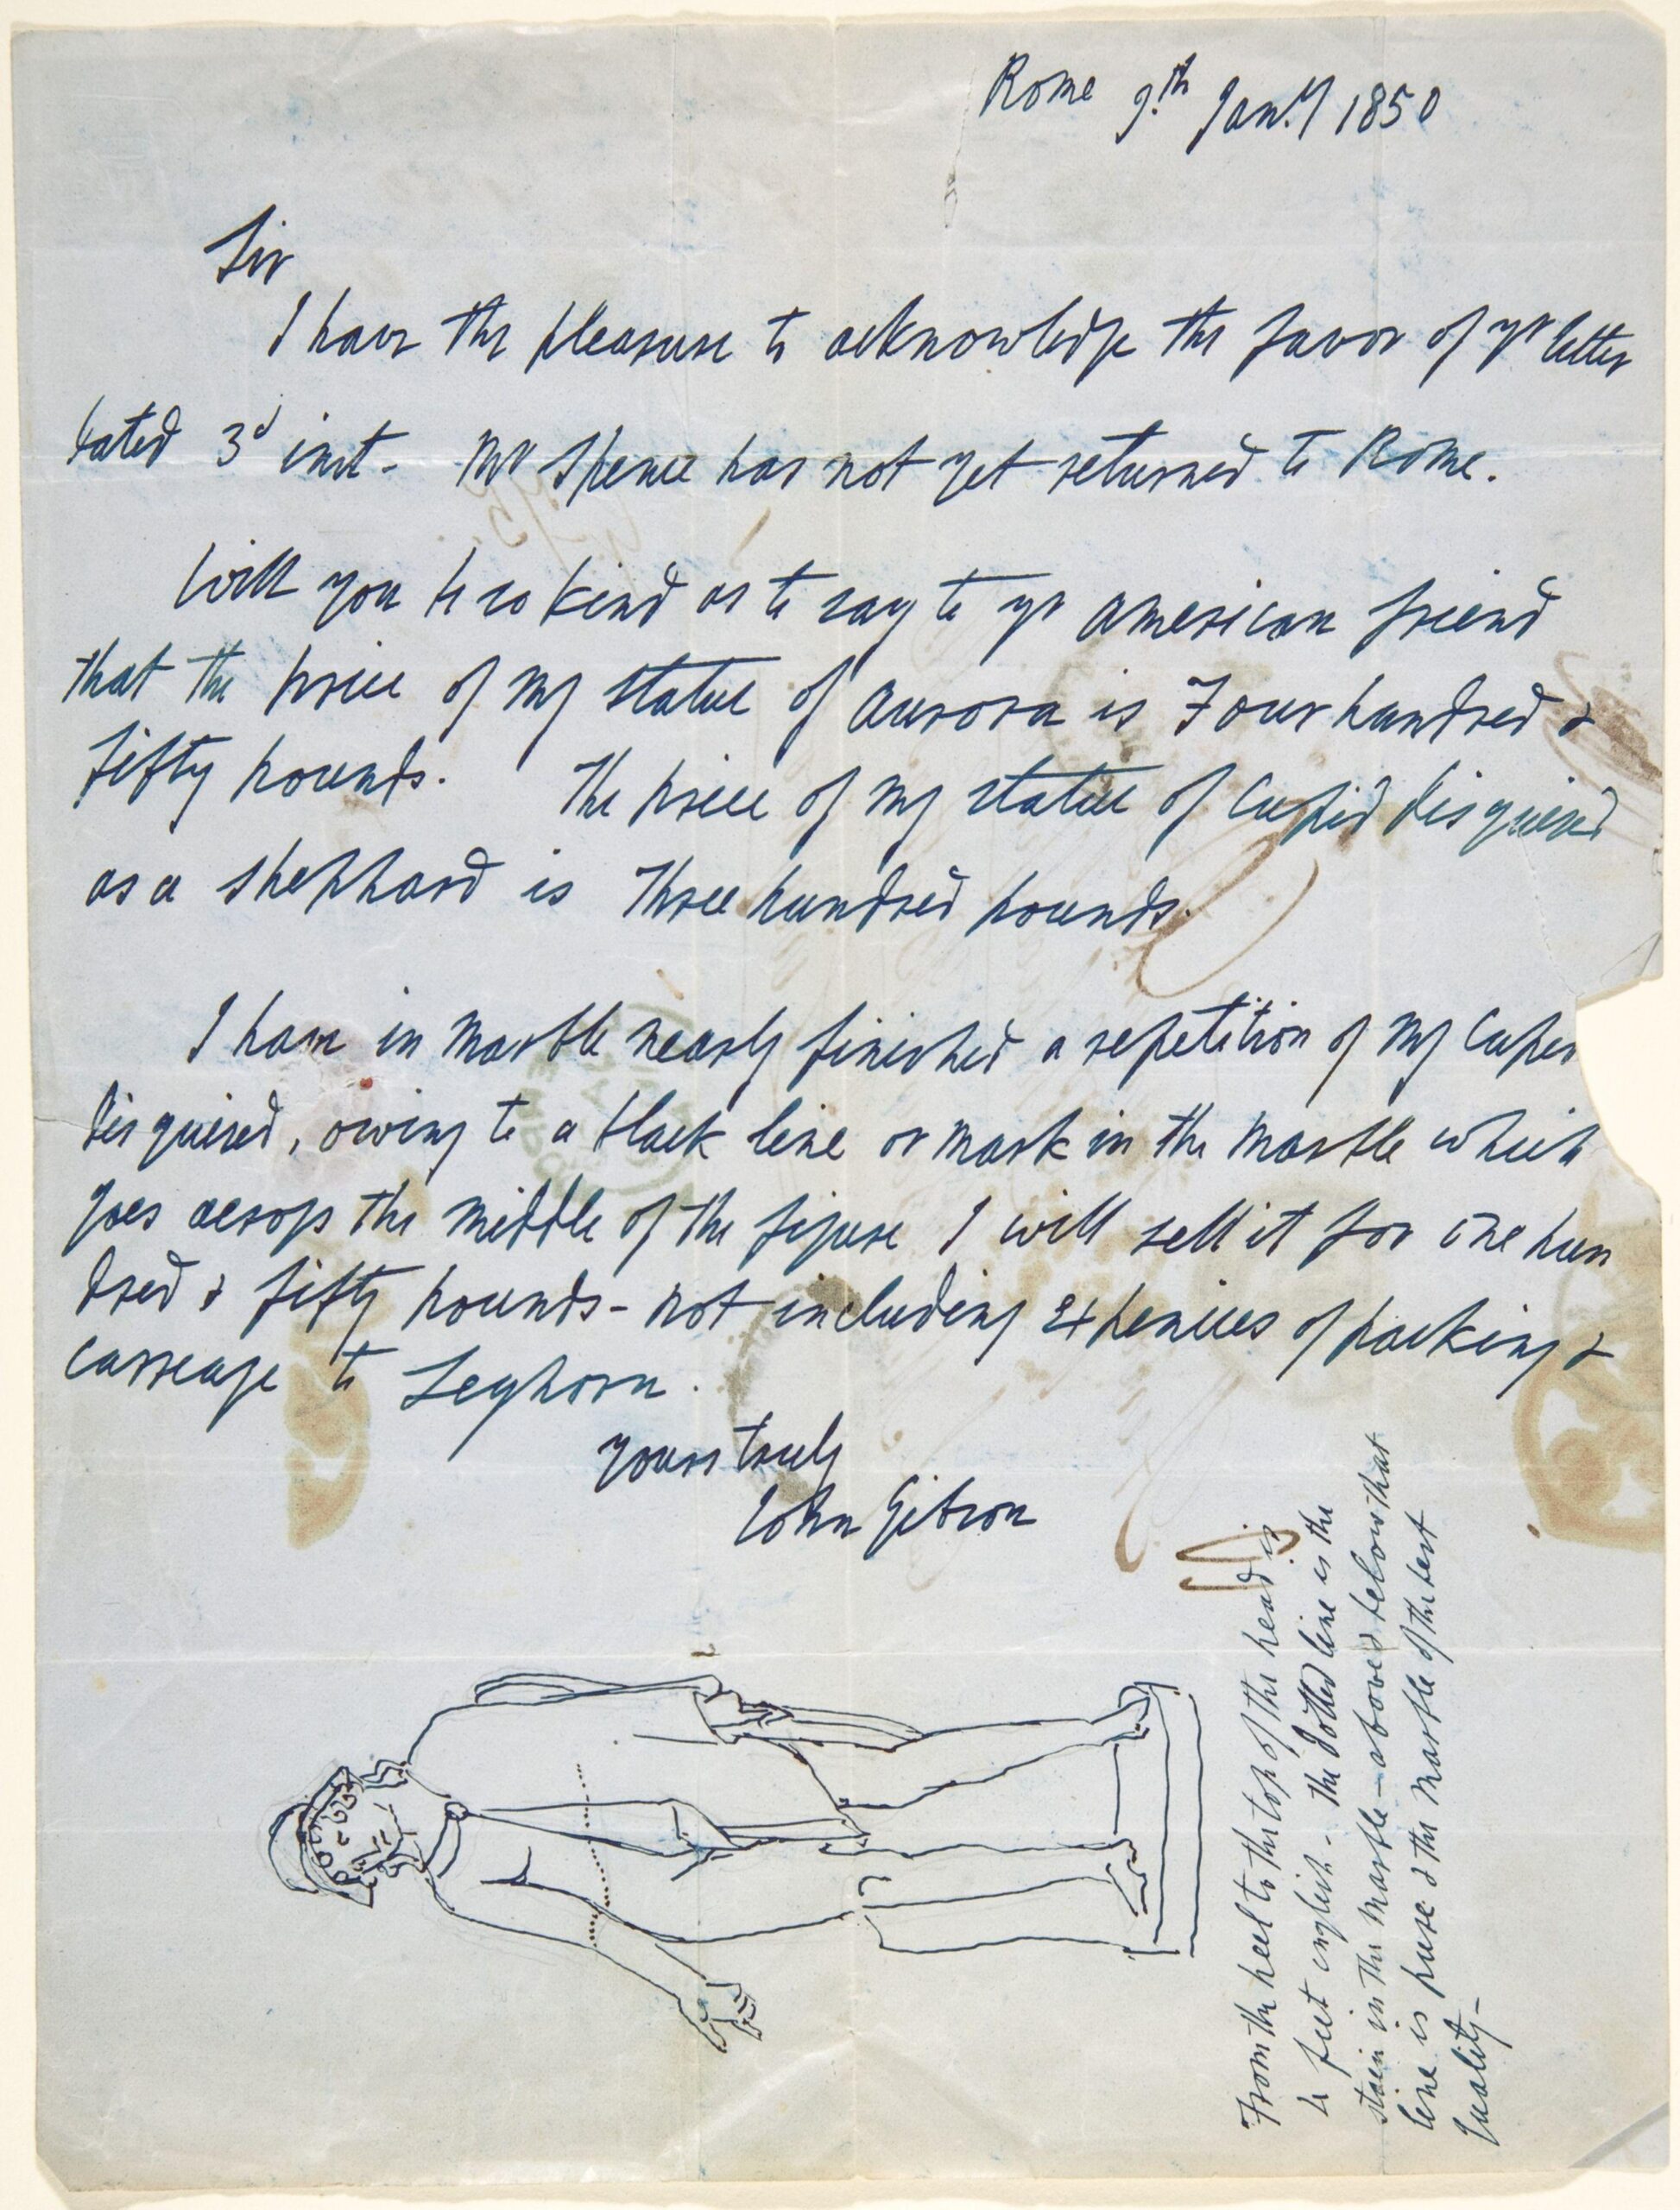 Rome 9th Jany 1850
Sir
I have the pleasure to acknowledge the favor of yr letter
dated 3d inst- Mr Spence has not yet returned to Rome.
Will you be so kind as to say to yr American friend
that the price of my statue of Aurora is Four hundred &
fifty pounds. The price of my statue of Cupid disguised
as a shephard is Three hundred pounds.
I have in marble nearly finished a repetition of my Cupid
disguised, owing to a black line or mark in the marble which
goes across the middle of the figure I will sell it for one hun
dred & fifty pounds - not including expences of packing &
carreage to Leghorn.
yours truly
John Gibson
From the heel to the top of the head is
4 feet english - the dotted line is the
stain in the marble - above & below that
line is pure & the marble of the best
quality -